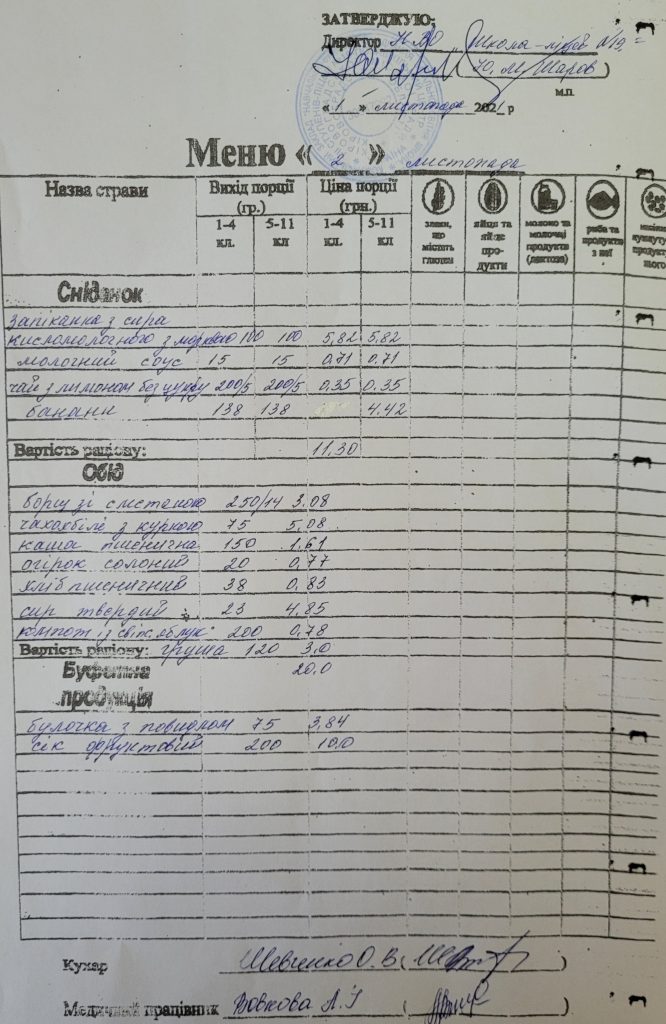 ЗАТВЕРДЖУЮ:
Директор НМО Школа-ліцей №19
(Ю.М. Шаров)
м.п.
« 1 » листопада 2021 р
Меню « 2 » листопада
Назва страви Вихід порції (гр.) Ціна порції (грн.)
1-4 кл. 5-11 кл 1-4 кл. 5-11 кл
злаки, що містять глютен
яйця та яйце продукти
молоко та молочні продукти (лактоза)
риба та продукти з неї
Сніданок
Запіканка з сира
кисломолочного з морквою 100 100 5,82 5,82
молочний соус 15 15 0,71 0,71
чай з лимоном без цукру 200/5 200/5 0,35 0,35
банани 138 138 4,42
Вартість раціону: 11,30
Обід
борщ зі сметаною 250/14 3,08
чахохбілі з куркою 75 5,08
каша пшенична 150 1,61
огірок солоний 20 0,77
хліб пшеничний 38 0,83
сир твердий 23 4,85
компот із свіж. яблук 200 0,78
Вартість раціону: груша 120 3,0
Буфетна 20,0
продукція
булочка з повидлом 75 3,84
сік фруктовий 200 10,0
Кухар Шевченко О.В. ( )
Медичний працівник Вовкова Л.І ( )